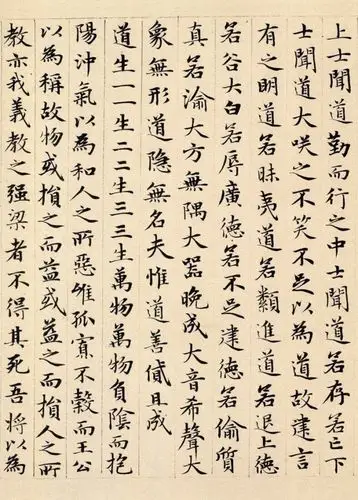 上士聞道勤而行之中士聞道若存若亡下
士聞道大咲之不笑不足以為道故建言
有之明道若昧夷道若纇進道若退上德
若谷大白若辱廣德若不足建德若偷質
真若渝大方無隅大器晚成大音希聲大
象無形道隱無名夫惟道善貸且成
道生一一生二二生三三生萬物萬物負陰而抱
陽沖氣以為和人之所惡惟孤寡不穀而王公
以為稱故物或損之而益或益之而損人之所
教亦我義教之强梁者不得其死吾將以為